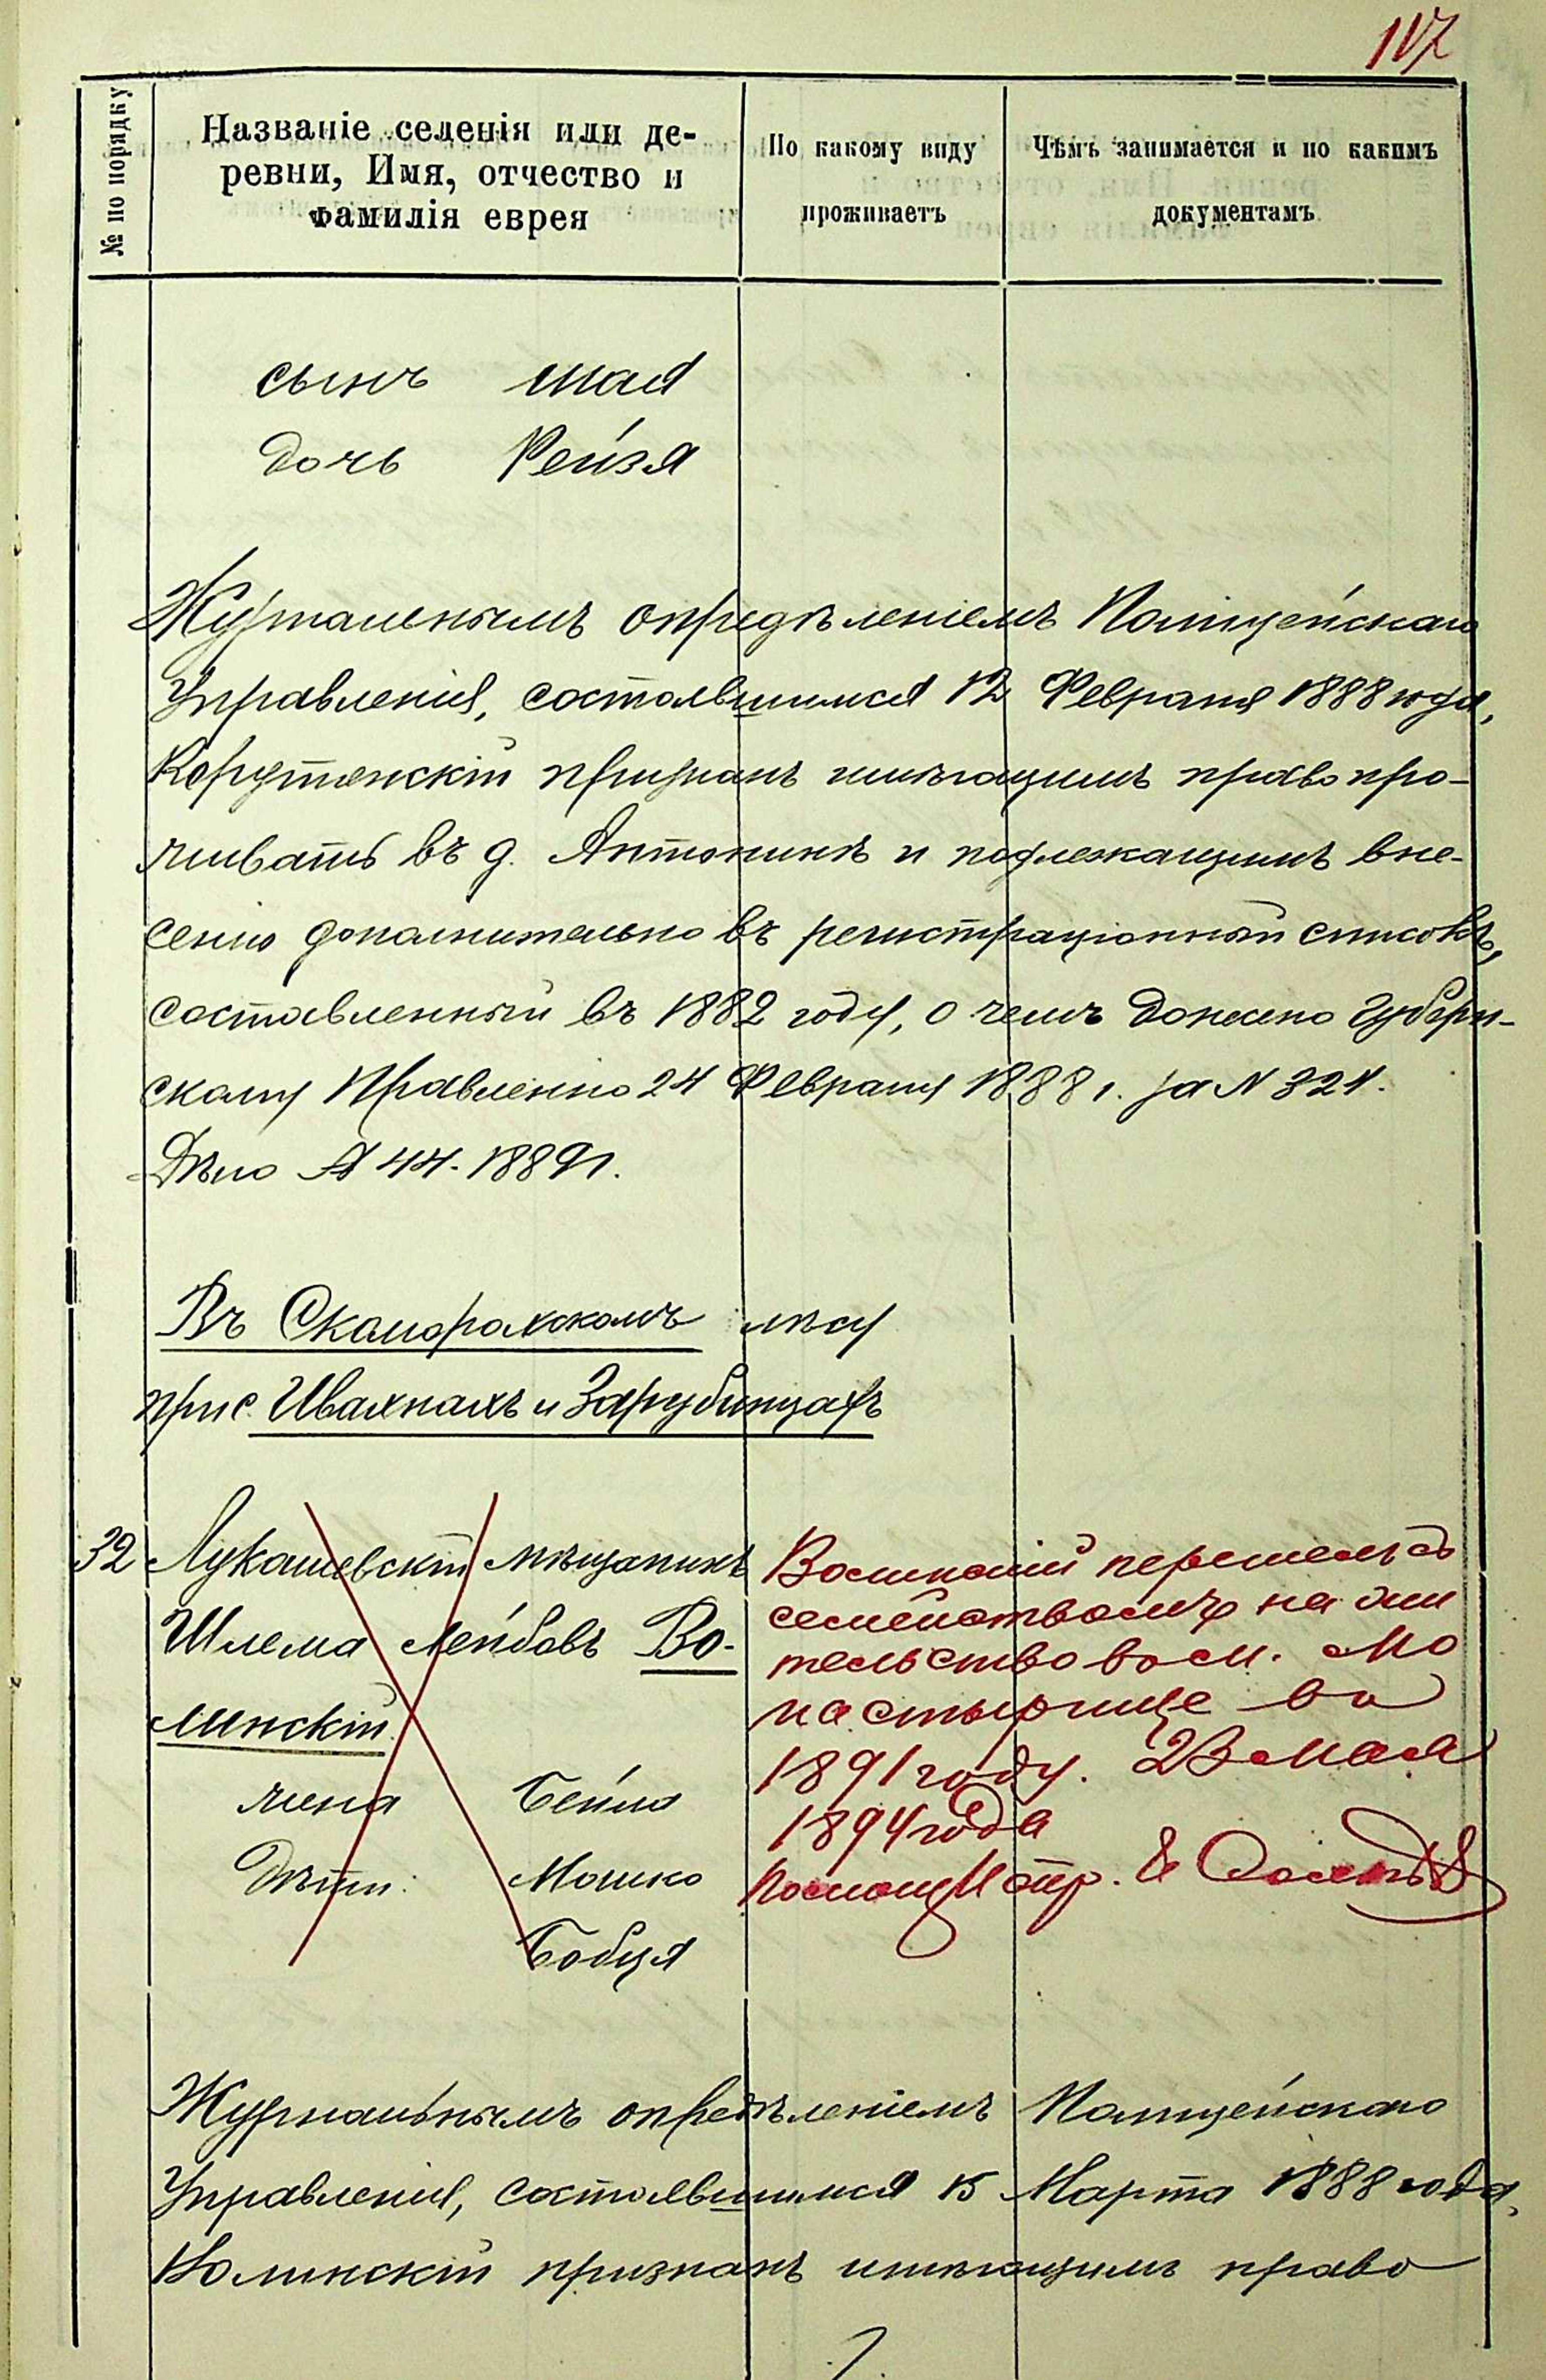 117
№ по порядку
Названіе селенія или де-
ревни, Имя, отчество и
фамилія еврея
По какому виду
проживаетъ
Чѣмъ занимается и по какимъ
документамъ
сынъ Шая
дочь Рейзя
Журнальнымъ опредѣленіемъ Полицейскаго
Управленія, состоявшимся 12 Февраля 1888 года,
признанъ имѣющимъ право про-
живать въ д. Антонинѣ и подлежащимъ вне-
сенію дополнительно въ регистраціонный списокъ,
составленный въ 1882 году, о чемъ донесено Губерн-
скому Правленію 24 Февраля 1888 г. за N 324.
Дѣло № 44. 1889 г.
Въ Скаморохскомъ лѣсу
при с. Ивахнахъ и Зарубинцахъ
32 Лукашевскій мѣщанинъ
Шлема Лейбовъ Во-
линскій
жена Бейла
Дѣти: Мошко
Бобця
Волинскій перешелъ съ
семействомъ на жи
тельство въ м. Мо
настырище въ
1891 году. 23 мая
1894 года
Журнальнымъ опредѣленіемъ Полицейскаго
Управленія, состоявшимся 15 Марта 1888 года,
Волинскій признанъ имѣющимъ право